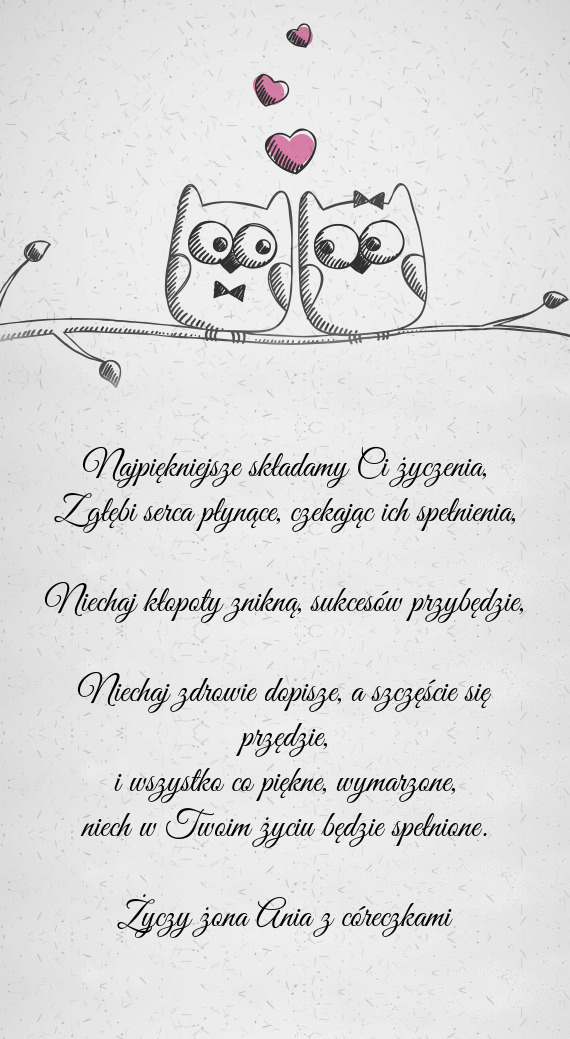 Najpiękniejsze składamy Ci życzenia,
Zgłębi serca płynące, czekając ich spełnienia,
Niechaj kłopoty znikną, sukcesów przybędzie,
Niechaj zdrowie dopisze, a szczęście się
przędzie,
i wszystko co piękne, wymarzone,
niech w Twoim życiu będzie spełnione.
Życzy żona Ania z córeczkami